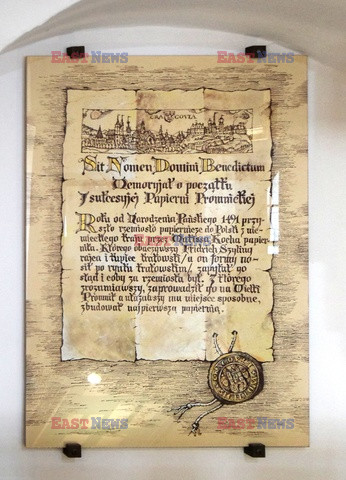 EASTNEWS EASTNEWS
CRACOVIA
Sit Nomen Domini Benedictum
Memoryał o początku
y sukcesyjej Papierni Prądnickiej
Roku od Narodzenia Pańskiego 1491 przy-
szło rzemiosło papiernicze do Polski z nie-
mieckiego kraju przez Kocha papier-
nika. Którego obaczywszy Fridrich Szyling
rajca i kupiec krakowski/ a on formy no-
sił po rynku krakowskim/ zapytał go
skąd i coby za rzemiosła był. Z którego
zrozumiawszy, zaprowadził go na Wielki
Prądnik a ukazawszy mu miejsce sposobne,
zbudował najpierwszą papiernią.
EASTNEWS EASTNEWS